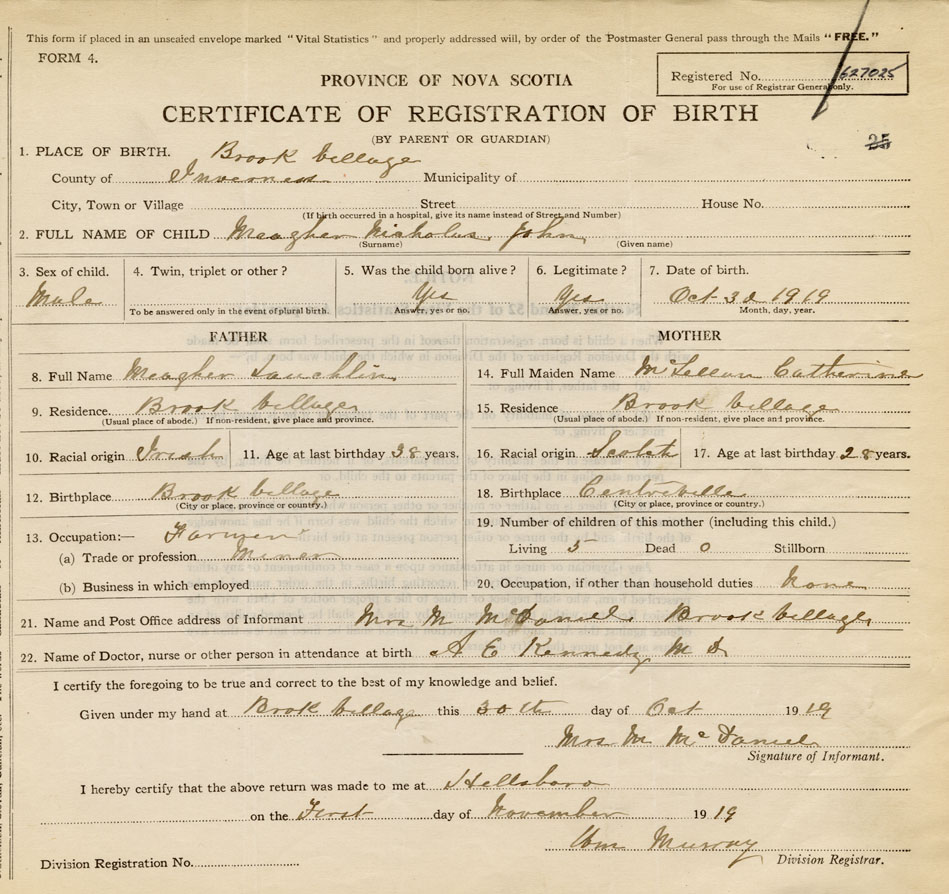 This form if placed in an unsealed envelope marked "Vital Statistics" and properly addressed will, by order of the Postmaster General pass through the Mails "FREE."
FORM 4.
Registered No. 627025
For use of Registrar General only.
PROVINCE OF NOVA SCOTIA
CERTIFICATE OF REGISTRATION OF BIRTH
(BY PARENT OR GUARDIAN)
25
1. PLACE OF BIRTH. Brook village
County of Inverness Municipality of
City, Town or Village Street House No.
(If birth occurred in a hospital, give its name instead of Street and Number)
2. FULL NAME OF CHILD Meagher Nicholas John
(Surname) (Given name)
3. Sex of child. 4. Twin, triplet or other? 5. Was the child born alive? 6. Legitimate? 7. Date of birth.
Male Yes Yes Oct 3d 1919
To be answered only in the event of plural birth. Answer, yes or no. Answer, yes or no. Month, day, year.
FATHER MOTHER
8. Full Name Meagher Lauchlin 14. Full Maiden Name McLellan Catherine
9. Residence. Brook village 15. Residence Brook village
(Usual place of abode.) If non-resident, give place and province. (Usual place of abode.) If non-resident, give place and province.
10. Racial origin Irish 11. Age at last birthday 38 years. 16. Racial origin Scotch 17. Age at last birthday 28 years.
12. Birthplace Brook village 18. Birthplace Centreville
(City or place, province or country.) (City or place, province or country.)
13. Occupation:— Farmer 19. Number of children of this mother (including this child.)
(a) Trade or profession Miner Living 5 Dead 0 Stillborn
(b) Business in which employed 20. Occupation, if other than household duties None
21. Name and Post Office address of Informant Mrs M McDaniel Brook village
22. Name of Doctor, nurse or other person in attendance at birth A E Kennedy M D
I certify the foregoing to be true and correct to the best of my knowledge and belief.
Given under my hand at Brook village this 30th day of Oct 1919
Mrs M McDaniel
Signature of Informant.
I hereby certify that the above return was made to me at Hillsboro
on the First day of November 1919
Wm Murray
Division Registration No. Division Registrar.